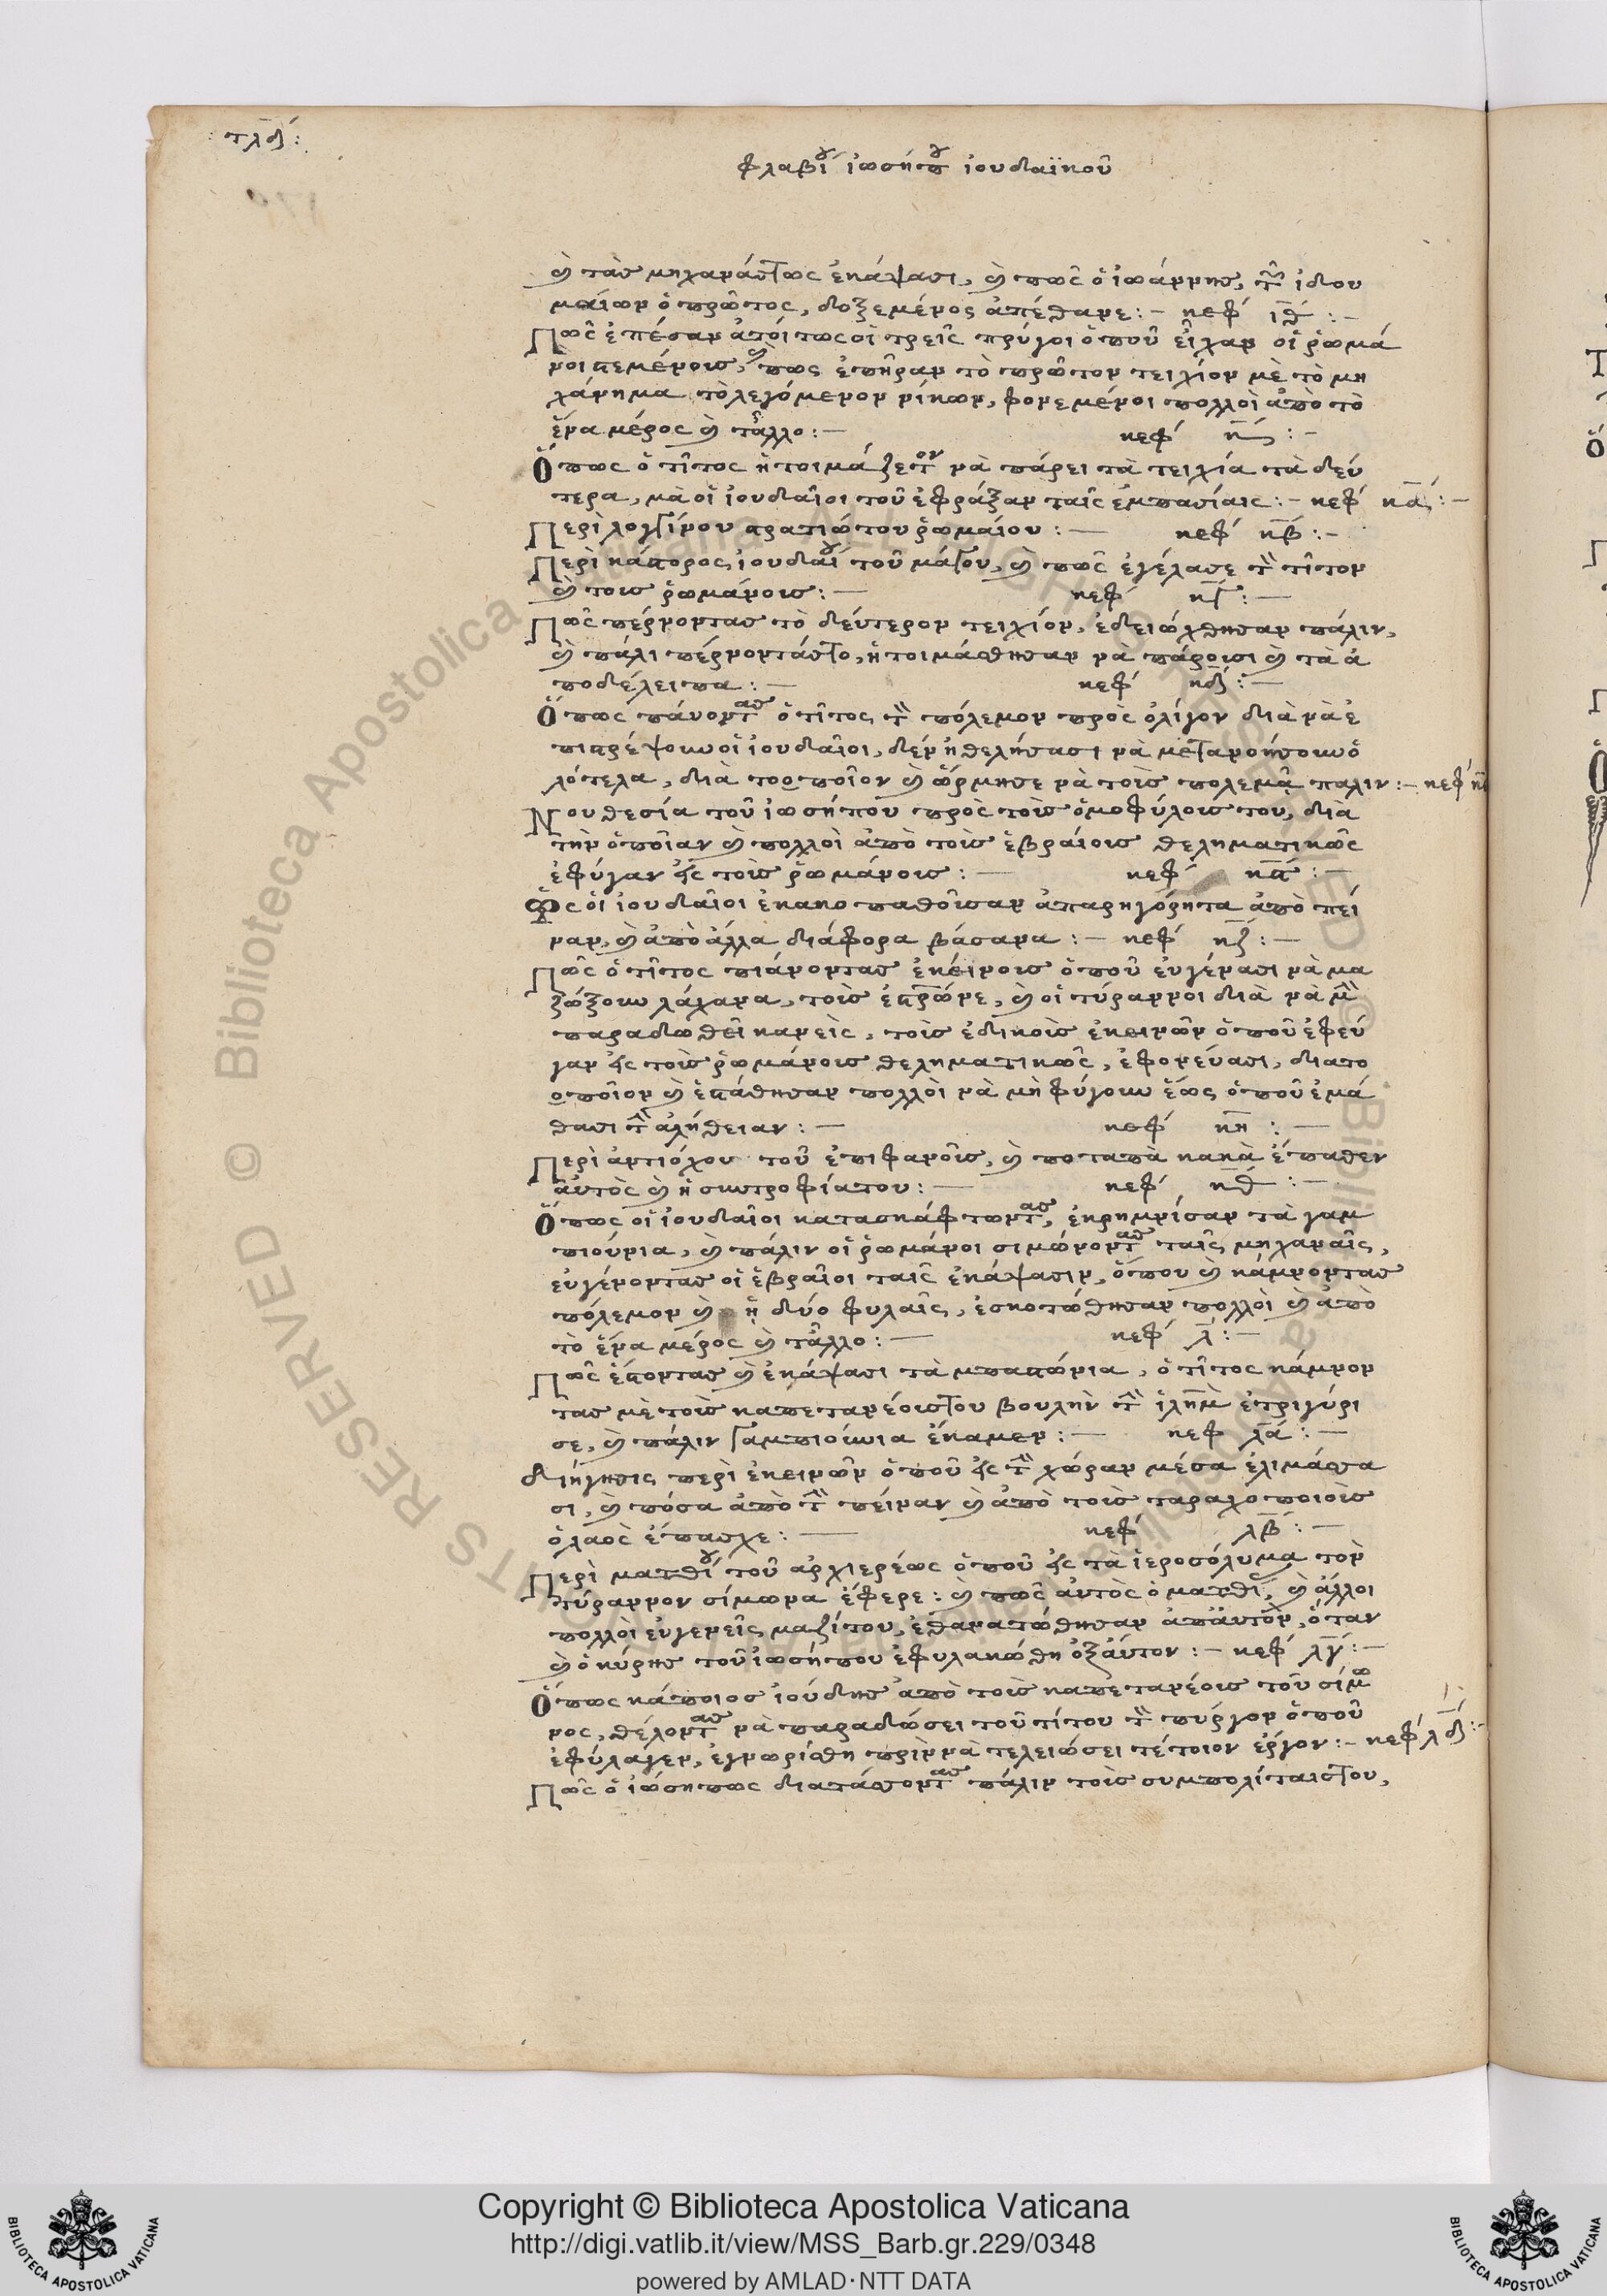 : τλδ́ :
φλαβίου ἰωσήπου ἰουδαϊκοῦ
καὶ τὰς μηχανάςτως ἐκάψασι, καὶ πῶς ὁ ἰωάννης, τῶν ἰδου
μαίων ὁ πρῶτος, δοξεμένος ἀπέθανε :– κεφ́ ιθ :–
Πῶς ἐπέσαν ἀπόιτως οἱ τρεῖς πύργοι ὁποῦ εἶχαν οἱ ῥωμά
νοι κτεμένους, καὶ πως ἐπῆραν τὸ πρῶτον τειχίον μὲ τὸ μη
χάνημα τὸ λεγόμενον νίκων, φονεμένοι πολλοὶ ἀπὸ τὸ
ἕνα μέρος καὶ τἆλλο :– κεφ́ κ :–
Ὅπως ὁ τῖτος ἡτοιμάζετον νὰ πάρει τὰ τειχία τὰ δεύ
τερα, μὰ οἱ ἰουδαῖοι τοῦ ἐφράξαν ταῖς ἐμπασίαις :– κεφ́ κα :–
Περὶ λογγίνου στρατιώτου ῥωμαίου :– κεφ́ κβ :–
Περὶ κάστορος ἰουδαίου τοῦ μάγου, καὶ πῶς ἐγέλασε τὸν τῖτον
καὶ τους ῥωμάνους :– κεφ́ κγ :–
Πῶς πέρνοντας τὸ δεύτερον τειχίον, ἐδειώχθησαν πάλιν,
καὶ πάλι πέρνοντάςτο, ἡτοιμάσθησαν νὰ πάρουσι καὶ τὰ ἀ
ποδέλειπα :– κεφ́ κδ :–
Ὅπως πάυοντας ὁ τῖτος τὸν πόλεμον πρὸς ὀλίγον διὰ νὰ ἐ
πιστρέψουν οἱ ἰουδαῖοι, δὲν ἠθελήσασι νὰ μετανοήσουν ὁ
λότελα, διὰ τοοποῖον καὶ ὥρμησε νὰ τοὺς πολεμᾷ παλιν :– κεφ́
Νουθεσία τοῦ ἰωσήπου πρὸς τοὺς ὁμοφύλους του, διὰ
τὴν ὁποῖαν καὶ πολλοὶ ἀπὸ τοὺς ἑβραίους θεληματικῶς
ἐφύγαν εἰς τοὺς ῥωμάνους :– κεφ́ κϛ :–
Πῶς οἱ ἰουδαῖοι ἐκακοπαθοῦσαν ἀπαρηγόρητα ἀπὸ πεί
ναν, καὶ ἀπὸ ἄλλα διάφορα βάσανα :– κεφ́ κζ :–
Πῶς ὁ τῖτος πιάνοντας ἐκείνους ὁποῦ εὐγένασι νὰ μα
ζώξουν λάχανα, τοὺς ἐστρῶνε, καὶ οἱ τύραννοι διὰ νὰ μὴν
παραδωθεῖ κανεὶς, τοὺς ἐδικοὺς ἐκεινῶν ὁποῦ ἐφεύ
γαν εἰς τοὺς ῥωμάνους θεληματικῶς, ἐφονεύασι, διατο
οποῖον καὶ ἐστάθησαν πολλοὶ νὰ μὴ φύγουν ἕως ὁποῦ ἐμά
θασι τὴν ἀλήθειαν :– κεφ́ κη :–
Περὶ ἀντιόχου τοῦ ἐπιφανοῦς, καὶ ποταπὰ κακὰ ἔπαθεν
ἀυτὸς καὶ ἡ συντροφίατου :– κεφ́ κθ :–
Ὅπως οἱ ἰουδαῖοι κατασκάφτωντας, ἐκρημνίσαν τὰ γαμ
πιούνια, καὶ πάλιν οἱ ῥωμάνοι σιμώνοντας ταῖς μηχαναῖς,
εὐγένοντας οἱ ἑβραῖοι ταῖς ἐκάψασιν, ὅπου καὶ κάμνοντας
πόλεμον καὶ ἡ δύο φυλαῖς, ἐσκοτώθησαν πολλοὶ καὶ ἀπὸ
τὸ ἕνα μέρος καὶ τἆλλο :– κεφ́ λ :–
Πῶς ἔστοντας καὶ ἐκάψασι τὰ μπαστιώνια, ὁ τῖτος κάμνον
τας μὲ τοὺς καπετανέουςτου βουλὴν τὴν ἱλῆμ ἐτριγύρι
σε, καὶ πάλιν γαμπιούνια ἔκαμεν :– κεφ λα :–
διήγησις περὶ ἐκεινῶν ὁποῦ εἰς τὴν χώραν μέσα ἐλιμάσσα
σι, καὶ πόσα ἀπὸ τὴν πείναν καὶ ἀπὸ τοὺς ταραχοποιοὺς
ὁ λαὸς ἔπασχε :– κεφ́ λβ :–
Περὶ ματθίου τοῦ ἀρχιερέως ὁποῦ εἰς τὰ ἱεροσόλυμα τὸν
τύραννον σίμωνα ἔφερε : καὶ πῶς ἀυτὸς ὁ ματθί, καὶ ἄλλοι
πολλοὶ εὐγενεῖς μαζίτου, ἐθανατώθησαν ἀπἀυτὸν, ὅταν
καὶ ὁ κύρης τοῦ ἰωσήπου ἐφυλακώθη ὀξάυτον :– κεφ́ λγ :–
Ὅπως κάποιος ἰούδης ἀπὸ τοὺς καπετανέους τοῦ σίμω
νος, θέλοντας νὰ παραδώσει τοῦ τίτου τὸν πύργον ὁποῦ
ἐφύλαγεν, ἐγνωρίσθη πρὶν νὰ τελειώσει τέτοιον ἔργον :– κεφ́ λδ :–
Πῶς ὁ ἰώσηπος διατάσσοντας πάλιν τοὺς συμπολίταιςτου,
Copyright © Biblioteca Apostolica Vaticana
http://digi.vatlib.it/view/MSS_Barb.gr.229/0348
powered by AMLAD·NTT DATA